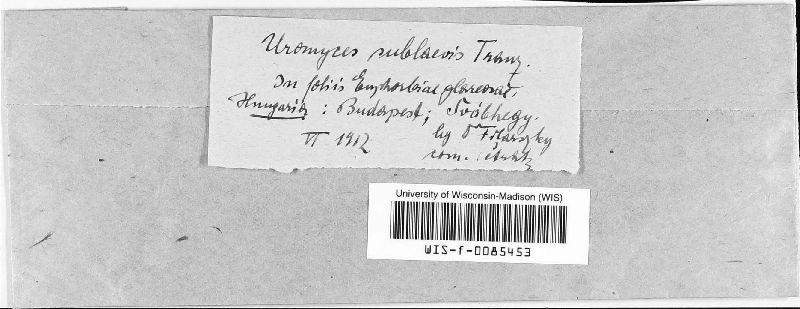 Uromyces sublaevis Tranz.
In foliis Euphorbiae glareosae.
Hungaria : Budapest; Svábhegy.
VI 1912
lg Dr Filarszky
com.
University of Wisconsin-Madison (WIS)
WIS-f-0085453